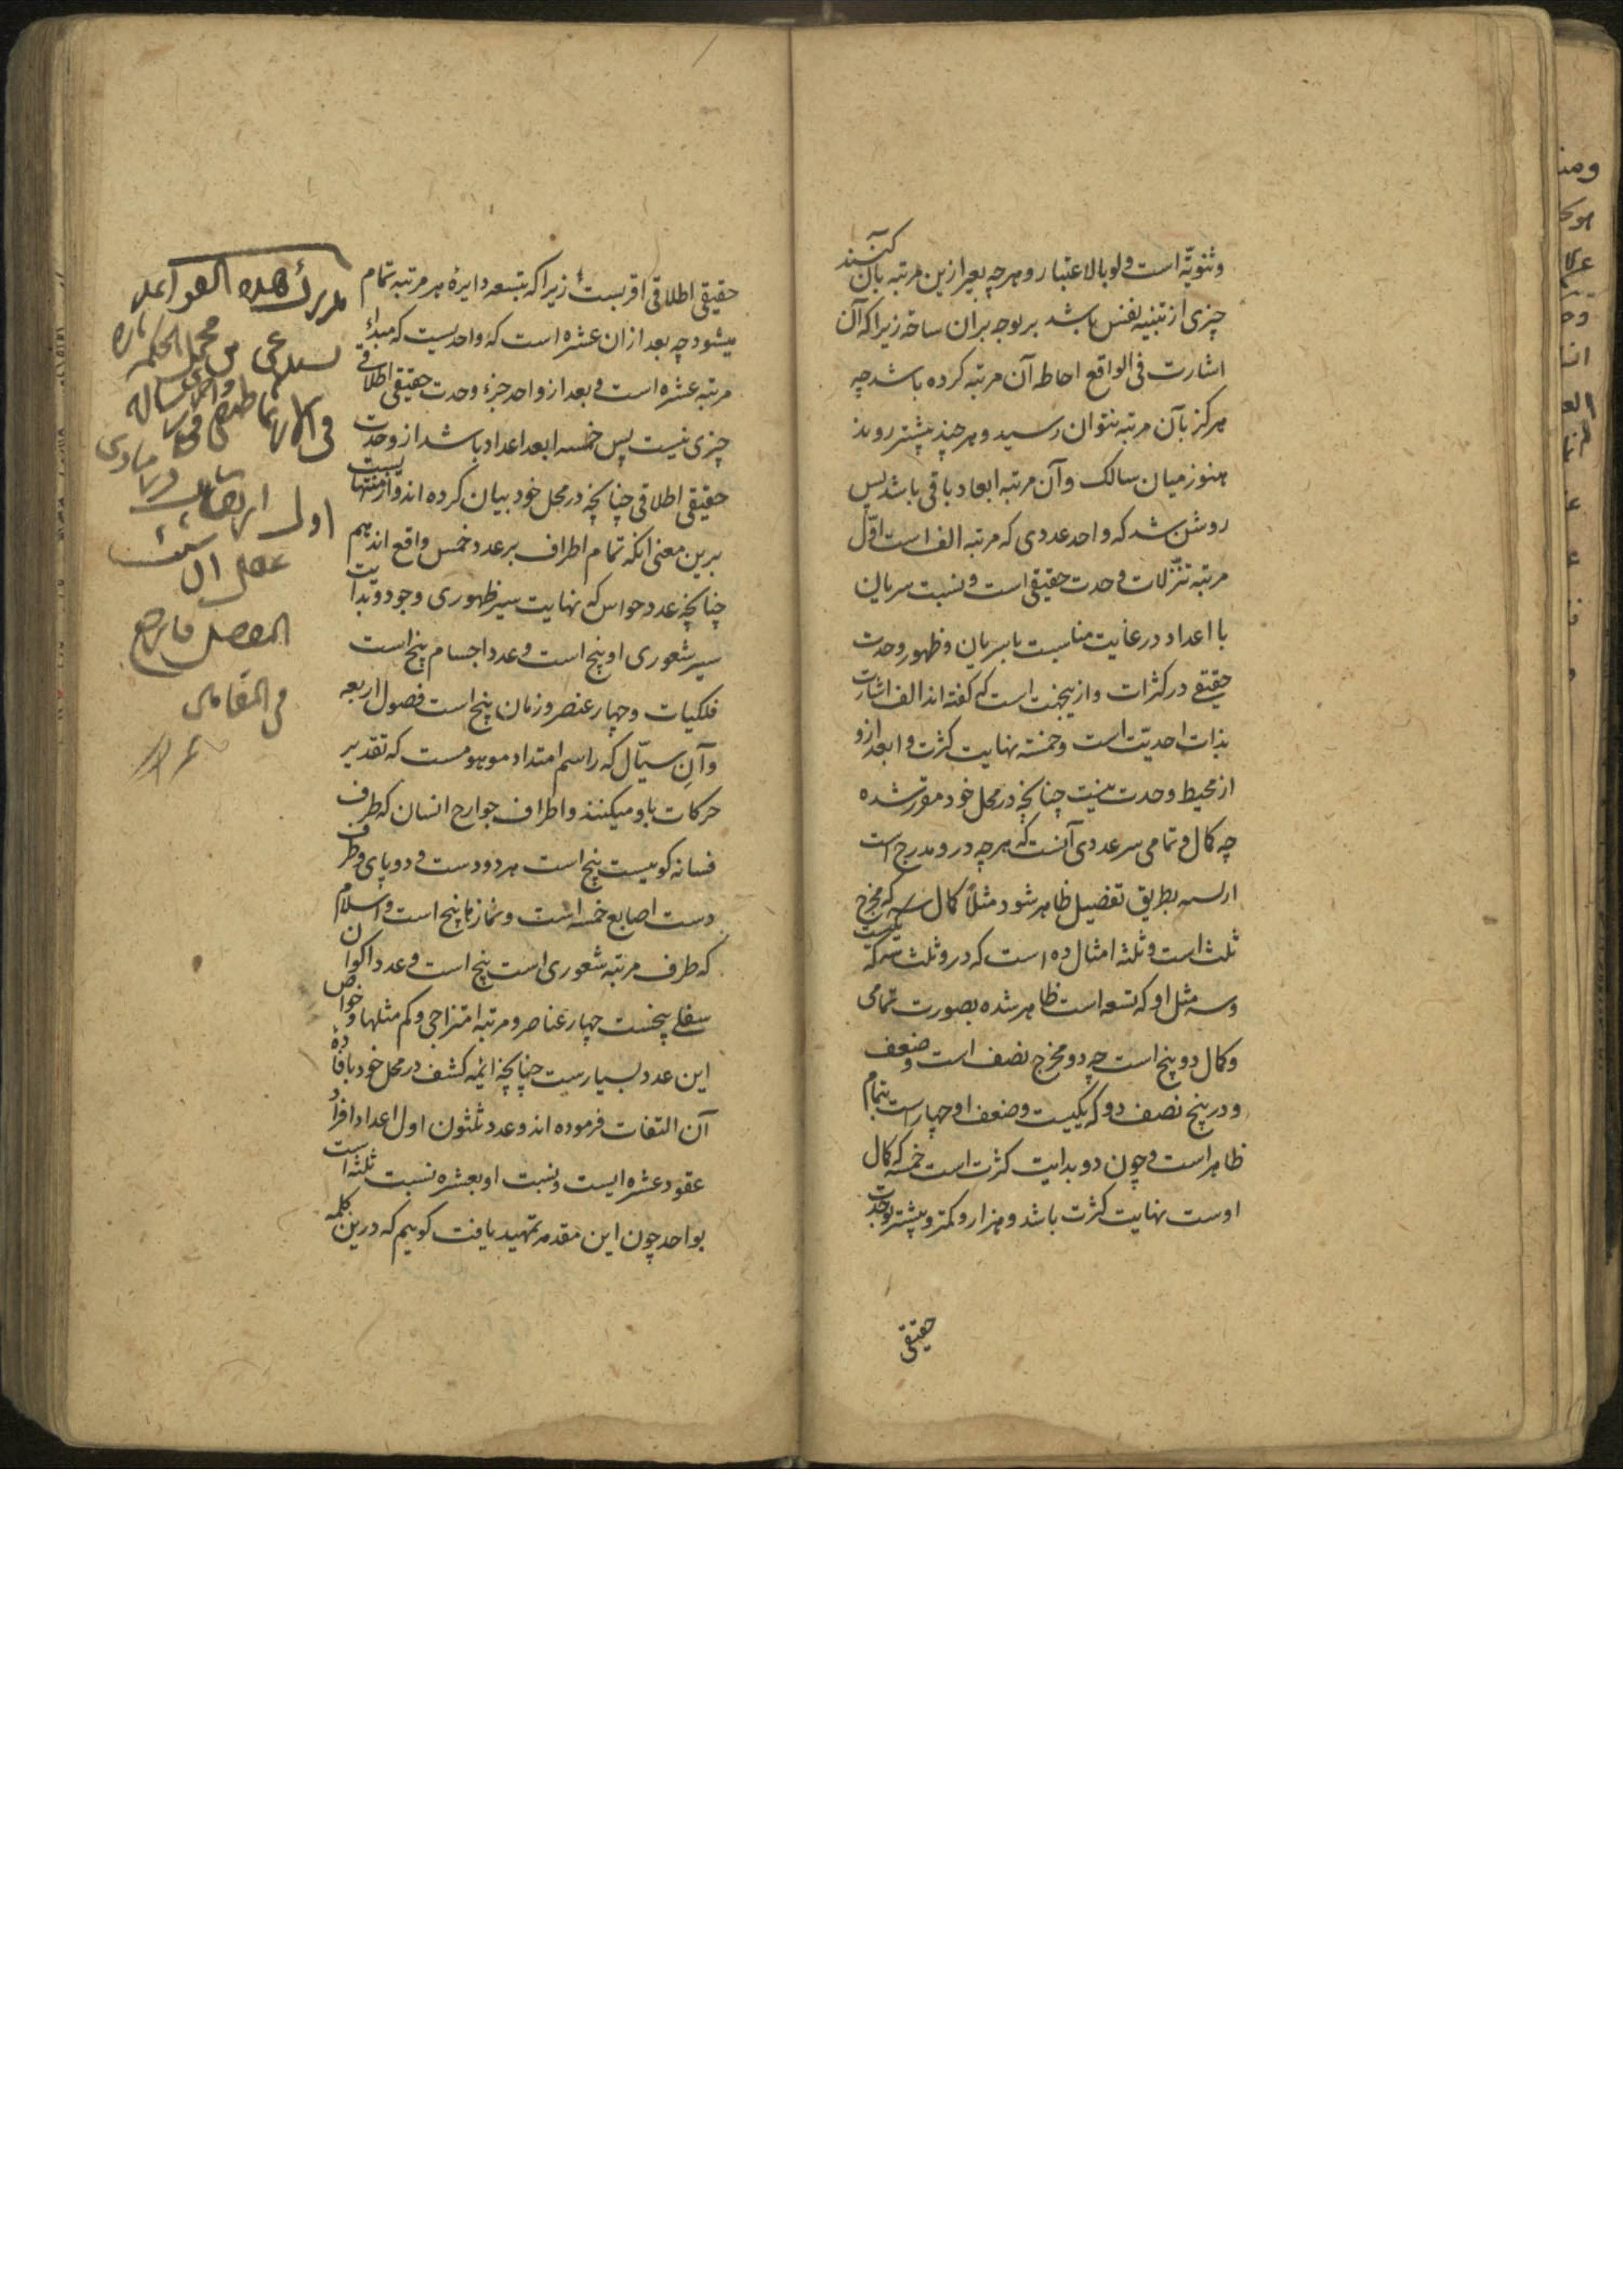 وثنویّه است ولو بالاعتبار و هر چه بغیر ازین مرتبه بآن کنند
چیزی از تنبیه نفس باشد بر توجه بران ساحة زیرا که آن
اشارت فی الواقع احاطه آن مرتبه کرده باشد چه
هرکز بآن مرتبه نتوان رسید و هر چند پیشتر روند
هنوز میان سالک و آن مرتبه ابعاد باقی باشد پس
روشن شد که واحد عددی که مرتبه الف است اوّل
مرتبه تنزّلات وحدت حقیقی است و نسبت سریان
با اعداد در غایت مناسبت با سریان و ظهور وحدت
حقیقی در کثرات و ازینجهت است که کفته اند الف اشارت
بذات احدیت است و خمسه نهایت کثرت و ابعد ازو
از محیط وحدت نیست چنانچه در محل خود مقرر شده
چه کمال و تمامی هر عددی آنست که هر چه درو مدرج است
بطریق تفضیل ظاهر شود مثلاً کمال سه که مخرج
ثلث است و ثلثه امثال ده است که درو ثلث سه که یکیست
و سه مثل او که تسعه است ظاهر شده بصورت تمامی
و کمال دو پنج است چه دو مخرج نصف است و ضعف
و در پنج نصف دو که یکیست و ضعف او چهار است بتمام
ظاهر است و چون دو بدایت کثرت است خمسه که کمال
اوست نهایت کثرت باشد و هزار و کمتر و پیشتر بوحدت
حقیقی
حقیقی اطلاقی اقربست زیرا که بتسعه دایرهٔ هر مرتبه تمام
میشود چه بعد از ان عشره است که واحدیست که مبداء
مرتبه عشره است و بعد از واحد جزء وحدت حقیقی اطلاقی
چیزی نیست پس خمسه ابعد اعداد باشد از وحدت
حقیقی اطلاقی چنانچه در محل خود بیان کرده اند و از منتهاییست
برین معنی انکه تمام اطراف بر عدد خمس واقع اند هم
چنانچه عدد حواس که نهایت سیر ظهوری وجود و بدایت
سیر شعوری او پنج است و عدد اجسام پنج است
فلکیات و چهار عنصر و زمان پنج است فصول اربعه
و آنِ سیّال که راسم امتداد موهومست که تقدیر
حرکات باو میکنند و اطراف جوارح انسان که طرف
فسانه کونیست پنج است هر دو دست و دو پای و طرف
دست اصابع خمسه است و نمازها پنج است و اسلام
که طرف مرتبه شعوری است پنج است و عدد اکوان
سفلے پنجست چهار عناصر و مرتبه امتزاجی و کم مثلها و خواص
این عدد بسیارست چنانچه ائمه کشف در محل خود بافاده
آن التفات فرموده اند و عدد ثلثون اول اعداد افراد
عقود عشره ایست و نسبت او بعشره نسبت ثلثه است
بواحد چون این مقدمه تمهید یافت کوییم که درین کلمه
هذه القواعد
یستدعی من
الحکمه
اول
المفصل فارجع
فی المقامات